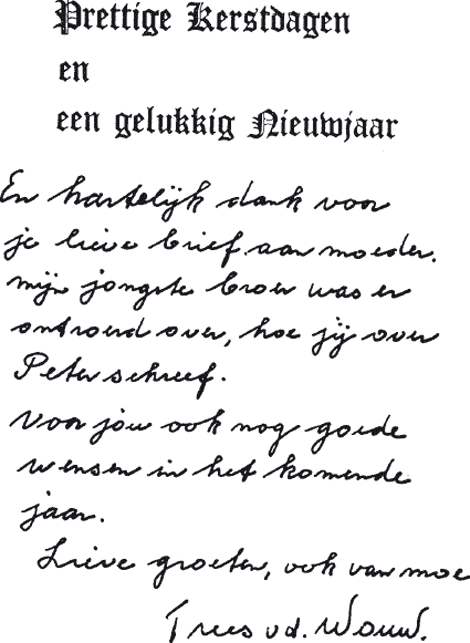 Prettige Kerstdagen
en
een gelukkig Nieuwjaar
En hartelijk dank voor
je lieve brief aan moeder.
mijn jongste broer was er
ontroerd over, hoe jij over
Peter schreef.
Voor jou ook nog goede
wensen in het komende
jaar.
Lieve groeten, ook van moe
Trees v.d. Wouw.